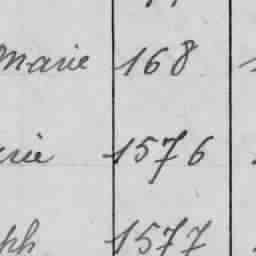 Marie 168
rie 1576
ph 1577